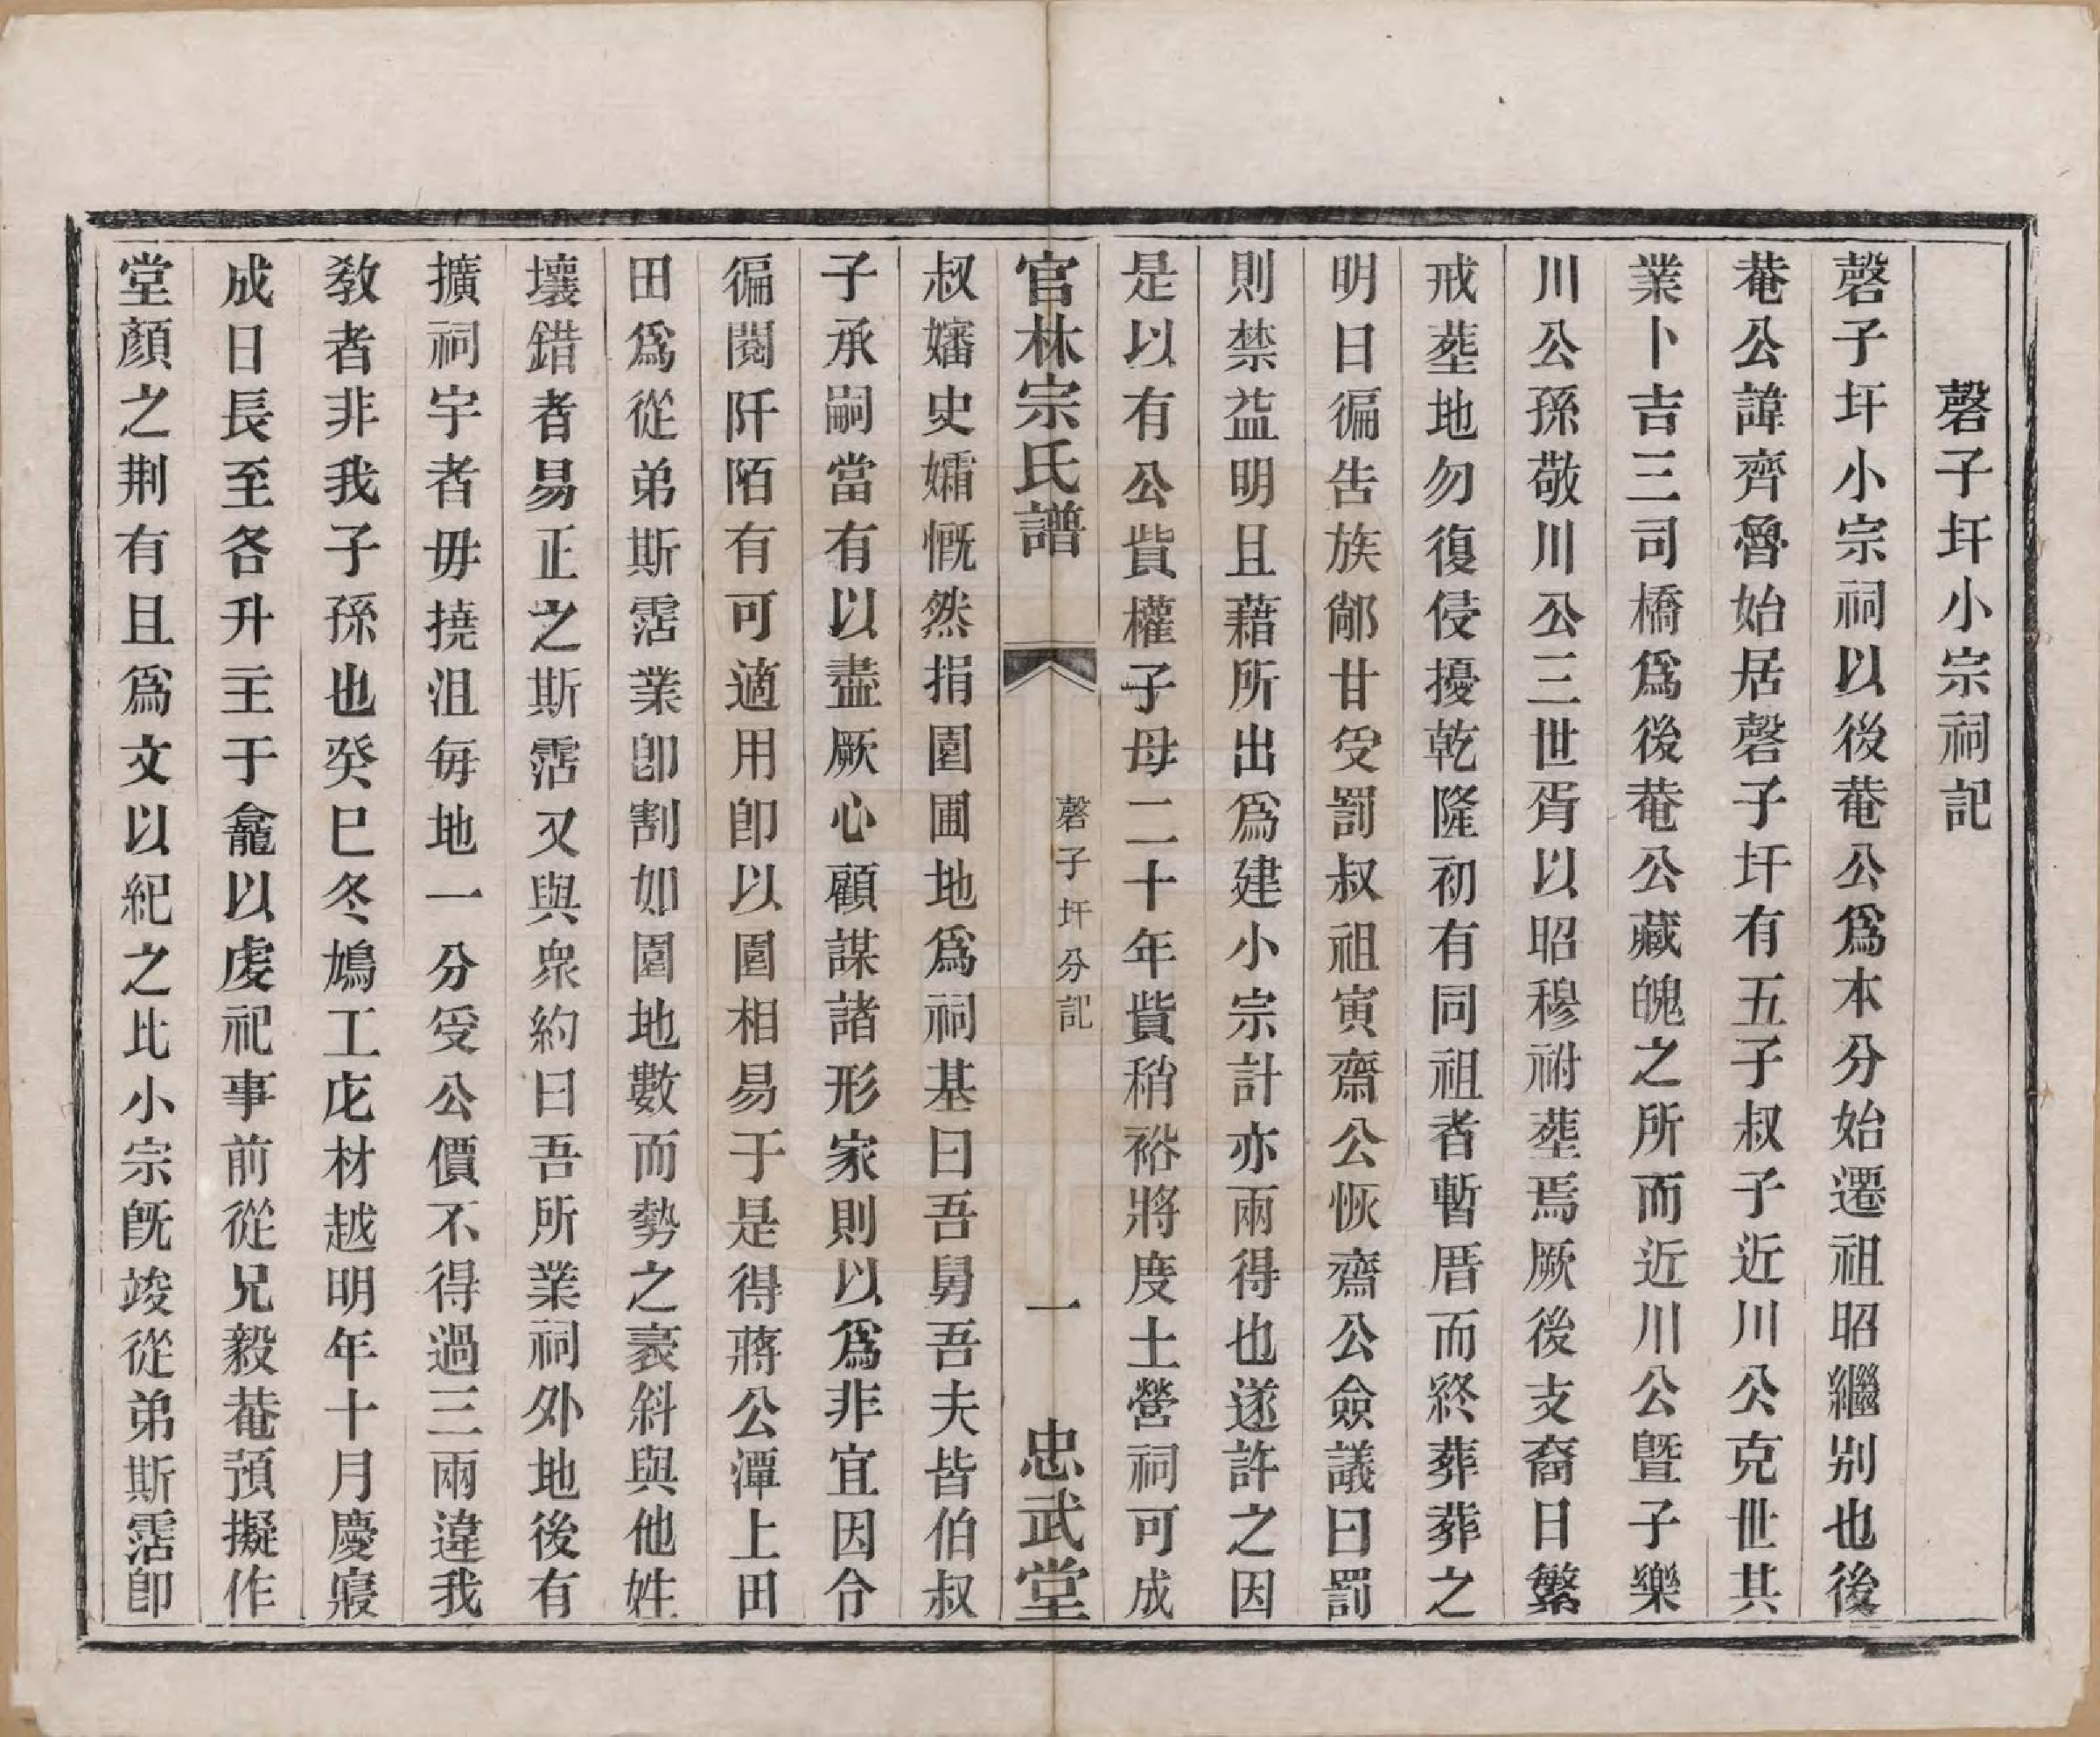 磬子圩小宗祠記
磬子圩小宗祠以後菴公爲本分始遷祖昭繼别也後
菴公諱齊魯始居磬子圩有五子叔子近川公克世其
業卜吉三司橋爲後菴公藏魄之所而近川公曁子樂
川公孫敬川公三世胥以昭穆祔塟焉厥後支裔日繁
戒塟地勿復侵擾乾隆初有同祖者暫厝而終葬葬之
明日徧告族鄰甘受罰叔祖寅齋公恢齋公僉議曰罰
則禁益明且藉所出爲建小宗計亦兩得也遂許之因
是以有公貲權子母二十年貲稍裕將度土營祠可成
官林宗氏譜
磬子圩分記
一
忠武堂
叔嬸史孀慨然捐園圃地爲祠基曰吾舅吾夫皆伯叔
子承嗣當有以盡厥心顧謀諸形家則以爲非宜因令
徧閱阡陌有可適用卽以園相易于是得蔣公潭上田
田爲從弟斯霑業卽割如園地數而勢之袤斜與他姓
壤錯者易正之斯霑又與衆約曰吾所業祠外地後有
擴祠宇者毋撓沮每地一分受公價不得過三兩違我
敎者非我子孫也癸巳冬鳩工庀材越明年十月慶寢
成日長至各升主于龕以虔祀事前從兄毅菴預擬作
堂顏之荆有且爲文以紀之比小宗旣竣從弟斯霑卽